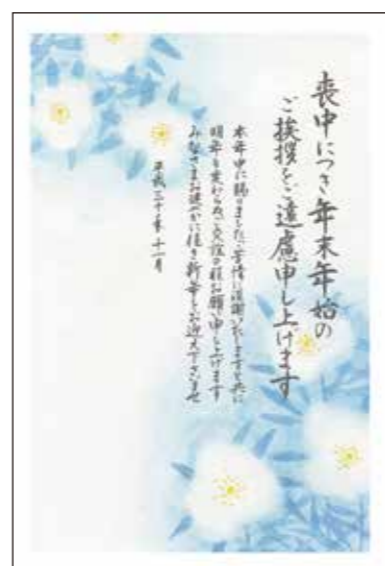 喪中につき年末年始の
ご挨拶をご遠慮申し上げます
本年中に賜りましたご芳情に深謝いたしますと共に
明年も変わらぬご交誼の程お願い申し上げます
みなさまお健やかに佳き新年をお迎え下さいませ
平成三十年 十一月